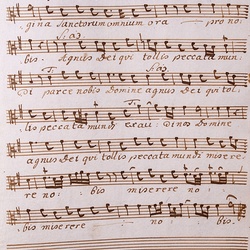 gina Sanctorum omnium ora pro no
Fia9
bis. Agnus Dei qui tollis peccata mun
di parce nobis Domine agnus Dei qui tol
lis peccata mundi exaudi nos Domine
agnus Dei qui tollis peccata mundi misere
re no bis miserere no
bis miserere no bis.